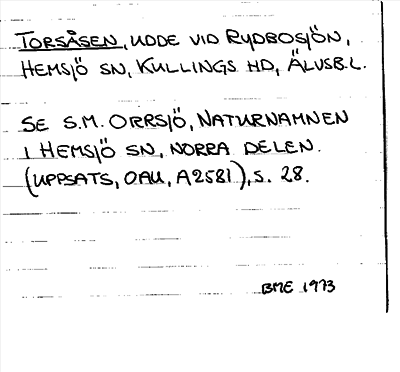 TORSÅSEN, UDDE VID RYDBOSJÖN,
HEMSJÖ SN, KULLINGS HD, ÄLVSB.L.
SE S.M. ORRSJÖ, NATURNAMNEN
I HEMSJÖ SN, NORRA DELEN.
(UPPSATS, OAU, A2581), S. 28.
BME 1973